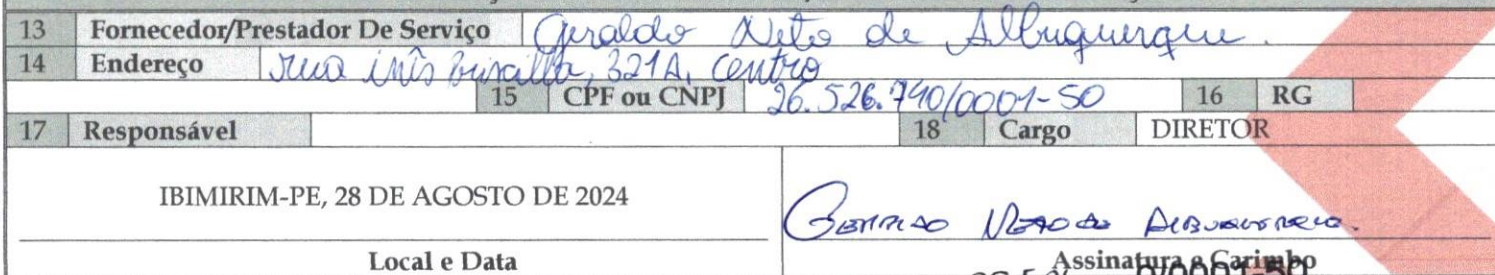 13 Fornecedor/Prestador De Serviço Geraldo Neto de Albuquerque.
14 Endereço rua inês 321A, centro
15 CPF ou CNPJ 26.526.740/0001-50 16 RG
17 Responsável 18 Cargo DIRETOR
IBIMIRIM-PE, 28 DE AGOSTO DE 2024
Geraldo Neto de Albuquerque.
Local e Data Assinatura e Carimbo
0/0001-50